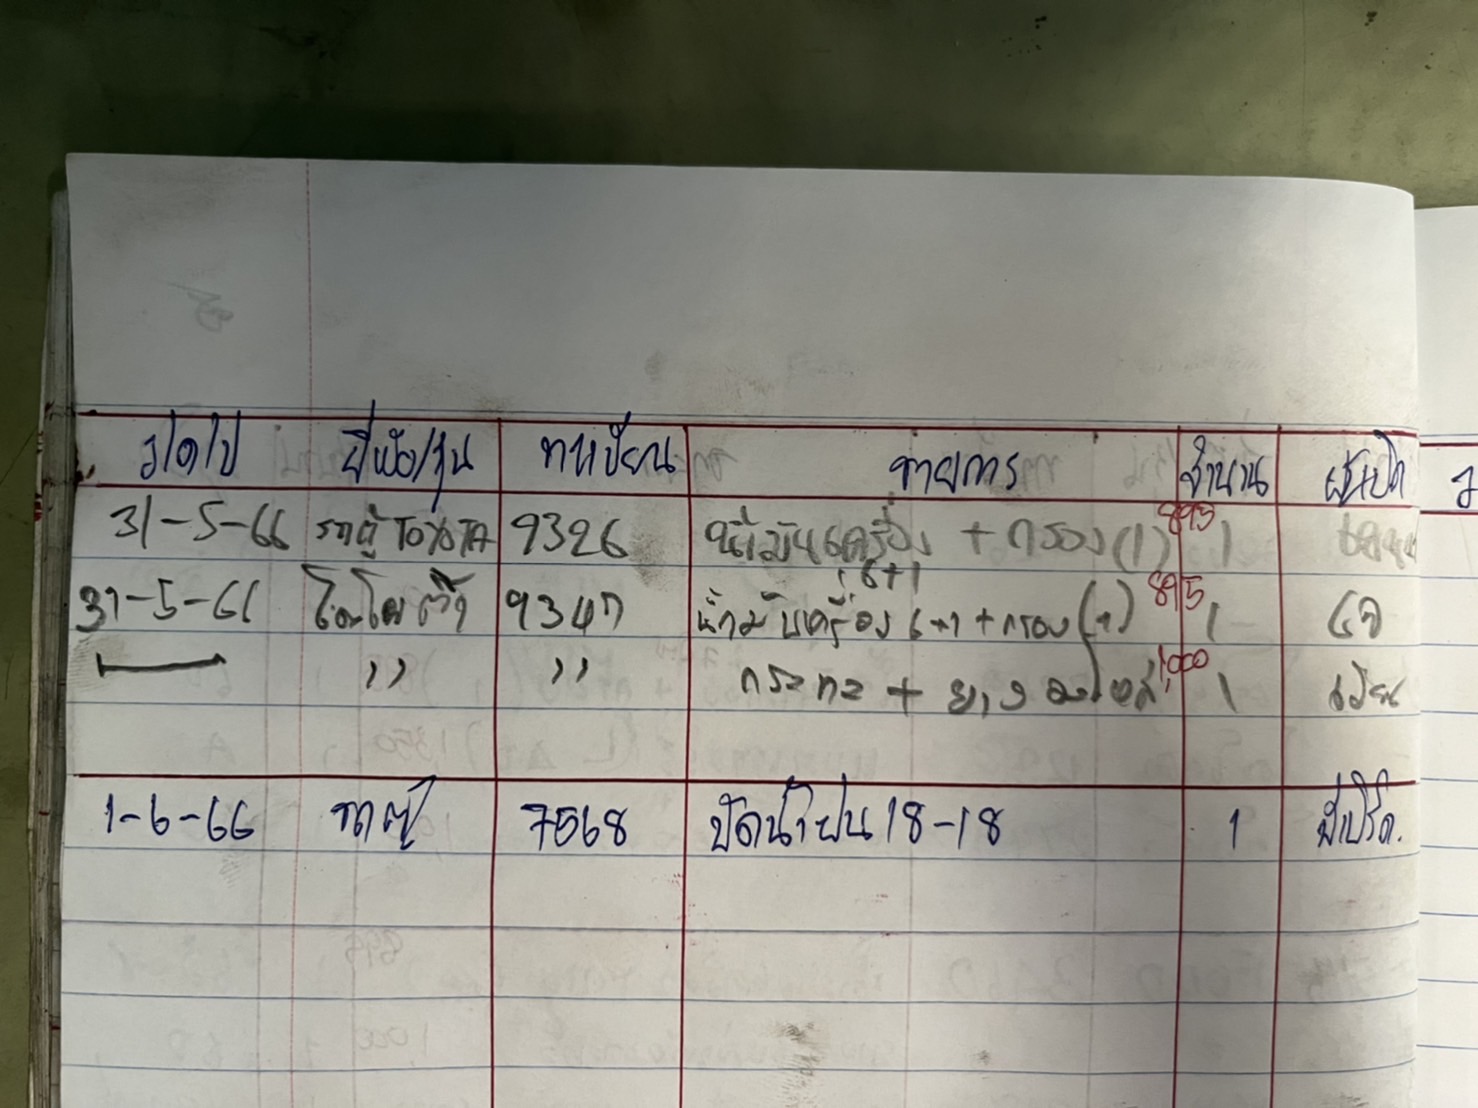 ว/ด/ป ยี่ห้อ/รุ่น ทะเบียน รายการ จำนวน ผู้เบิก
31-5-66 รถตู้ TOYOTA 9326 น้ำมันเครื่อง + กรอง (1) 895 1
6+1
31-5-66 โตโยต้า 9347 น้ำมันเครื่อง 6+1 + กรอง (1) 895 1
" " กระทะ + ยาง 1,000 1
1-6-66 รถตู้ 7568 ปัดน้ำฝน 18-18 1 พี่เบิร์ด.